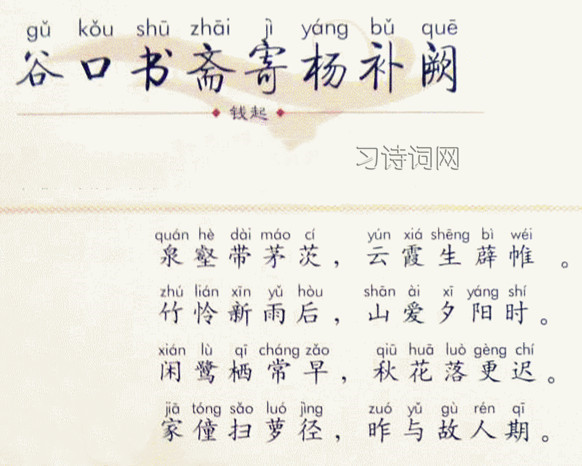 gǔ kǒu shū zhāi jì yáng bǔ quē
谷口书斋寄杨补阙
钱起
习诗词网
quán hè dài máo cí yún xiá shēng bì wéi
泉壑带茅茨，云霞生薜帷。
zhú lián xīn yǔ hòu shān ài xī yáng shí
竹怜新雨后，山爱夕阳时。
xián lù qī cháng zǎo qiū huā luò gèng chí
闲鹭栖常早，秋花落更迟。
jiā tóng sǎo luó jìng zuó yǔ gù rén qī
家僮扫萝径，昨与故人期。